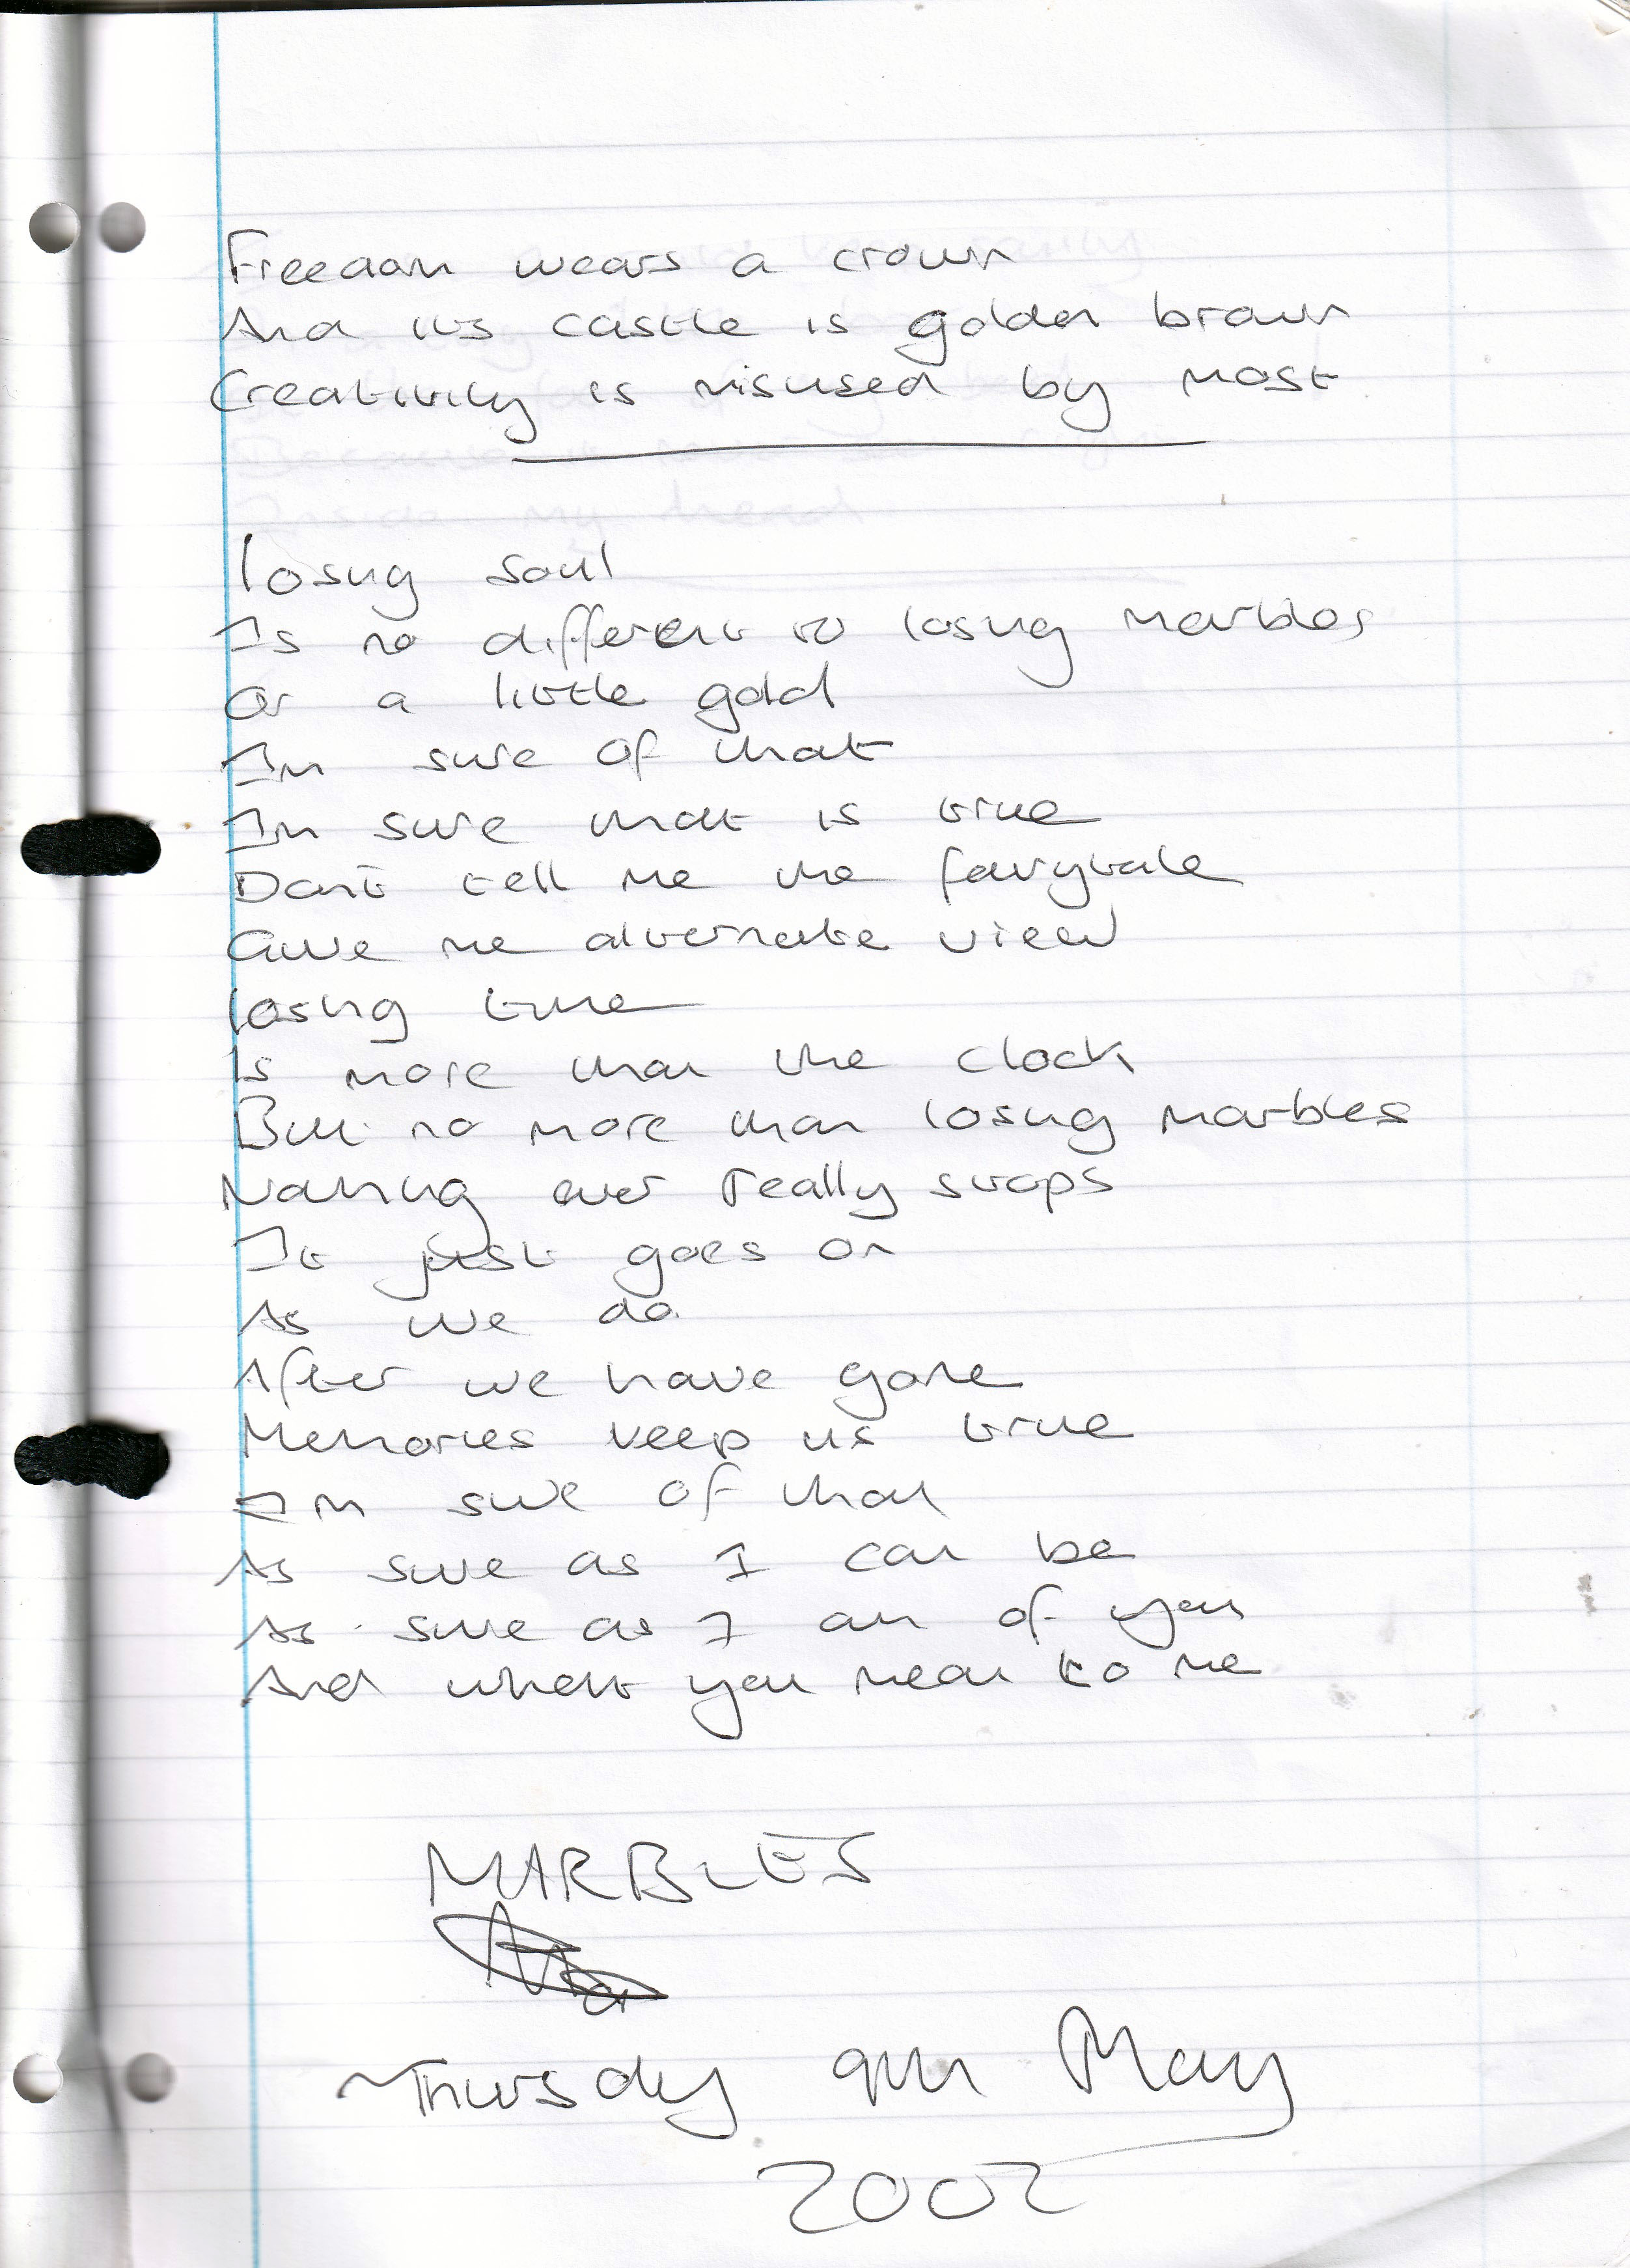 Freedom wears a crown
And its castle is golden brown
Creativity is misused by most
losing soul
Is no different to losing marbles
Or a little gold
Im sure of that
Im sure that is true
Don't tell me the fairytale
Give me alternate view
losing time
Is more than the clock
But no more than losing marbles
Nothing ever really stops
It just goes on
As we do
After we have gone
Memories keep us true
Im sure of that
As sure as I can be
As sure as I am of you
And what you mean to me
MARBLES
Thursday 9th May
2002